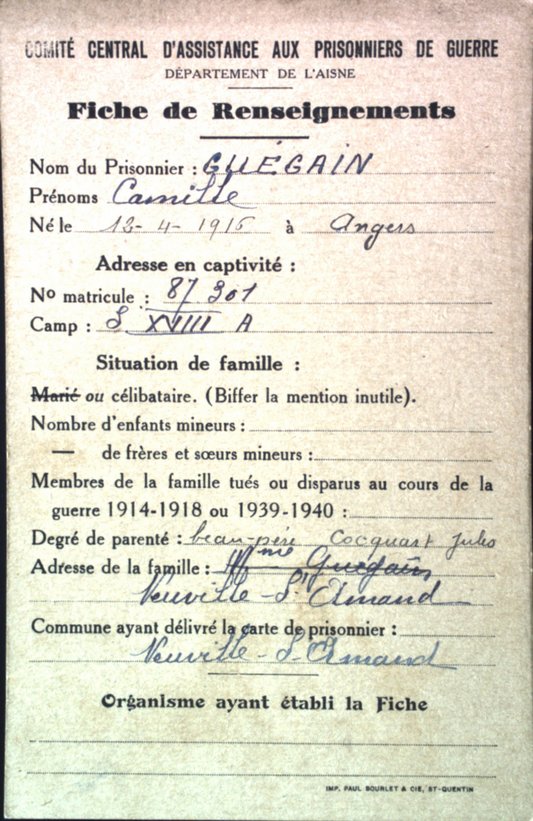 COMITÉ CENTRAL D'ASSISTANCE AUX PRISONNIERS DE GUERRE
DÉPARTEMENT DE L'AISNE
Fiche de Renseignements
Nom du Prisonnier : GUÉGAIN
Prénoms Camille
Né le 12-4-1916 à Angers
Adresse en captivité :
No matricule : 87 301
Camp : S XVIII A
Situation de famille :
Marié ou célibataire. (Biffer la mention inutile).
Nombre d'enfants mineurs :
— de frères et sœurs mineurs :
Membres de la famille tués ou disparus au cours de la
guerre 1914-1918 ou 1939-1940 :
Degré de parenté : beau-père Cocquart Jules
Adresse de la famille : Mme Guégain
Neuville-St Amand
Commune ayant délivré la carte de prisonnier :
Neuville-St Amand
Organisme ayant établi la Fiche
IMP. PAUL BOURLET & CIE, ST-QUENTIN